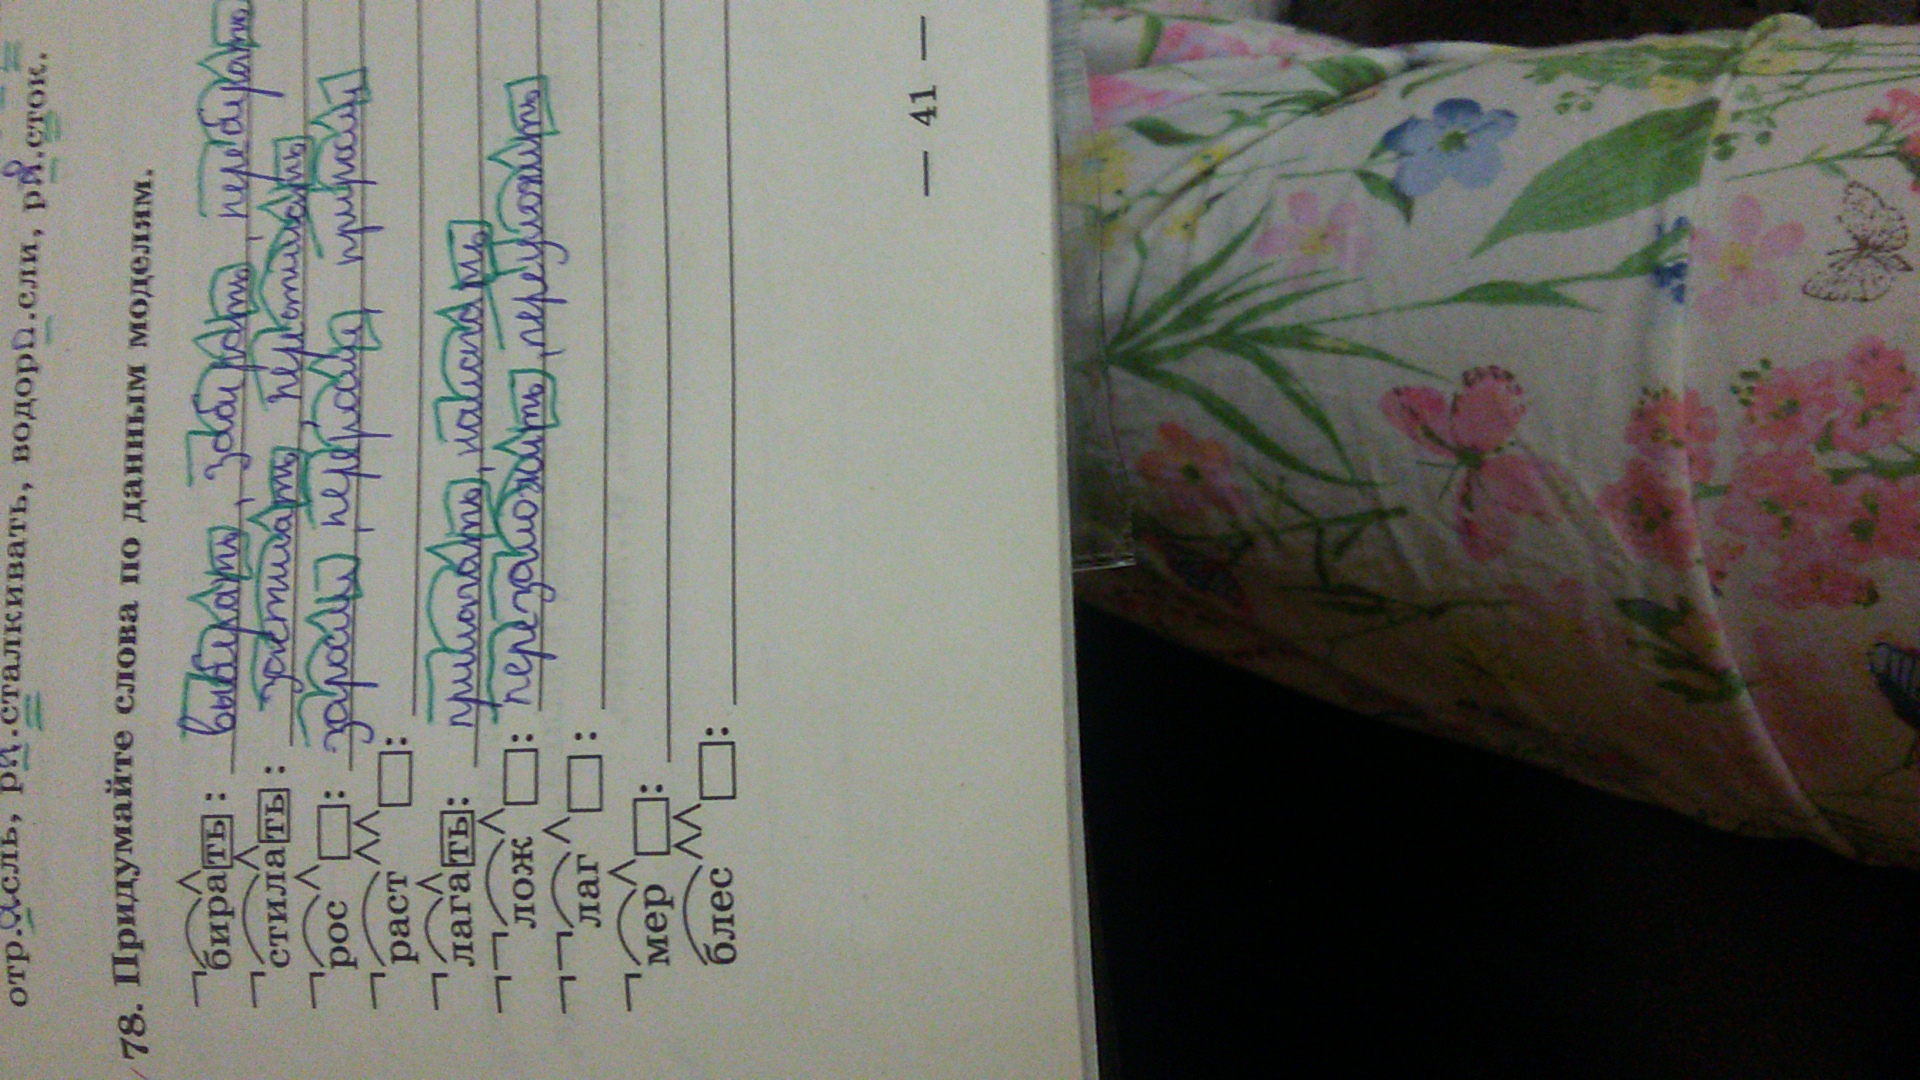 отр.а.сль, ра.сталкивать, водоро.сли, ро.сток.
78. Придумайте слова по данным моделям.
бирать: выберать, забирать, перебирать
стилать: застилать перестилать
рос: заросли, переросли, приросли
раст:
лагать: прилагать, налагать
лож: перезаложить, переуложить
лаг:
мер:
блес:
— 41 —